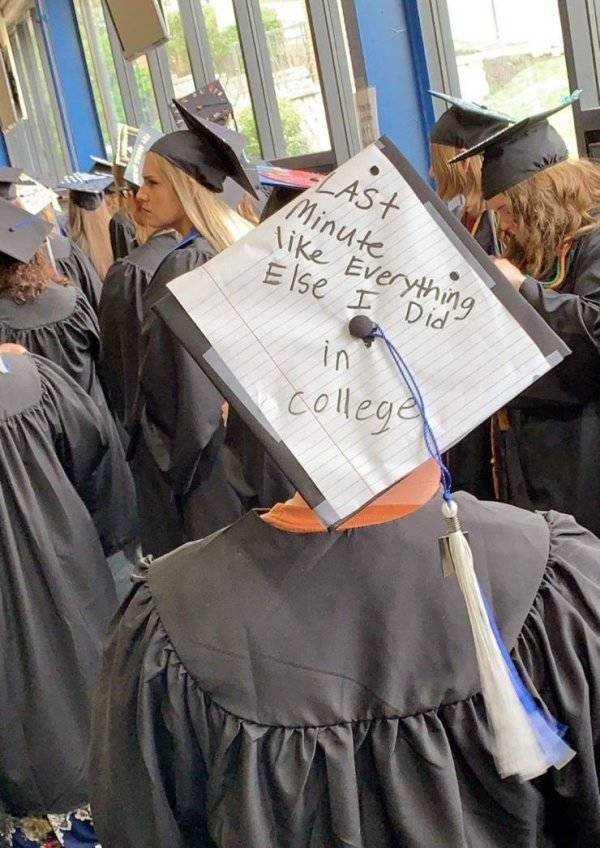 LASt
Minute
like Everything
Else I Did
in
college